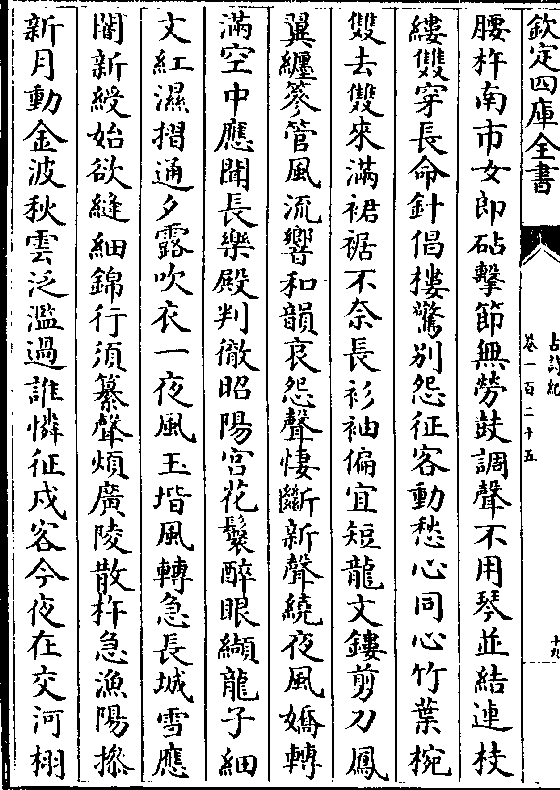 欽定四庫全書
古詩紀
卷一百二十五
十九
腰杵南市女郎砧擊節無勞鼓調聲不用琴並結連枝
縷雙穿長命針倡樓驚别怨征客動愁心同心竹葉椀
雙去雙來滿裙裾不奈長衫袖偏宜短龍文鏤剪刀鳳
翼纏篸管風流響和韻哀怨聲悽斷新聲繞夜風嬌轉
滿空中應聞長樂殿判徹昭陽宫花鬟醉眼纈龍子細
文紅濕摺通夕露吹衣一夜風玉堦風轉急長城雪應
闇新綬始欲縫細錦行須纂聲煩廣陵散杵急漁陽摻
新月動金波秋雲泛濫過誰憐征戍客今夜在交河栩